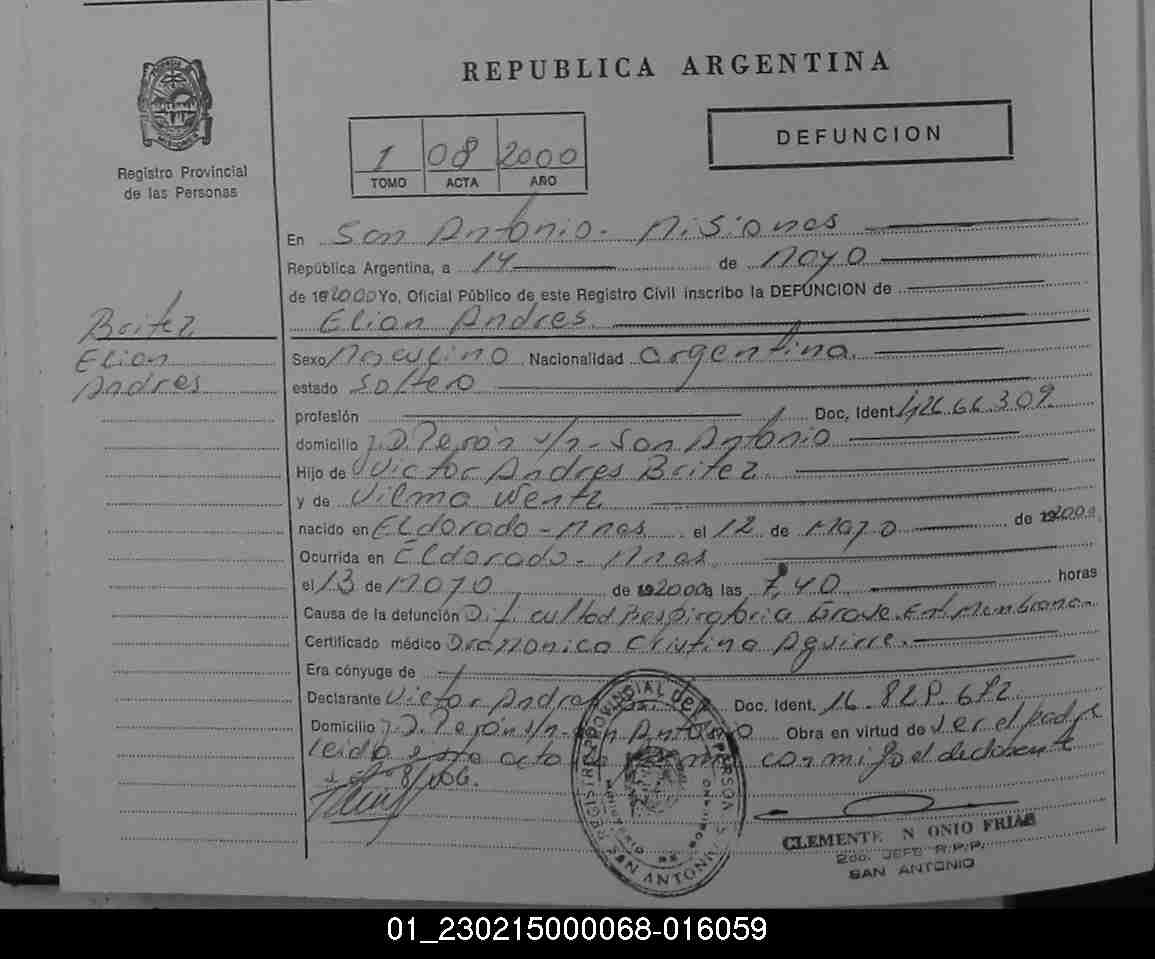 REPUBLICA ARGENTINA
Registro Provincial
de las Personas
1 08 2000
TOMO ACTA AÑO
DEFUNCION
En San Antonio. Misiones
República Argentina, a 14 de Mayo
de 192000 Yo, Oficial Público de este Registro Civil inscribo la DEFUNCION de
Britez
Elian
Andres
Elian Andres.
Sexo Masculino Nacionalidad argentina.
estado Soltero
profesión Doc. Ident. 42.66.309
domicilio J.D. Perón s/n - San Antonio
Hijo de Victor Andres Britez
y de Vilma Wentz
nacido en Eldorado - Mnes. el 12 de Mayo de 192000
Ocurrida en Eldorado - Mnes.
el 13 de Mayo de 192000 a las 7,40 horas
Causa de la defunción Dificultad Respiratoria Grave. Enf. Membrana
Certificado médico Dra Monica Cristina Aguirre.
Era cónyuge de
Declarante Victor Andres Doc. Ident. 16.829.672
Domicilio J.D. Perón s/n - San Antonio Obra en virtud de ser el padre
leido este acto la firma conmigo el declarante
REGISTRO PROVINCIAL DE LAS PERSONAS
SAN ANTONIO
CLEMENTE N ONIO FRIAS
2do. JEFE R.P.P.
SAN ANTONIO
01_230215000068-016059